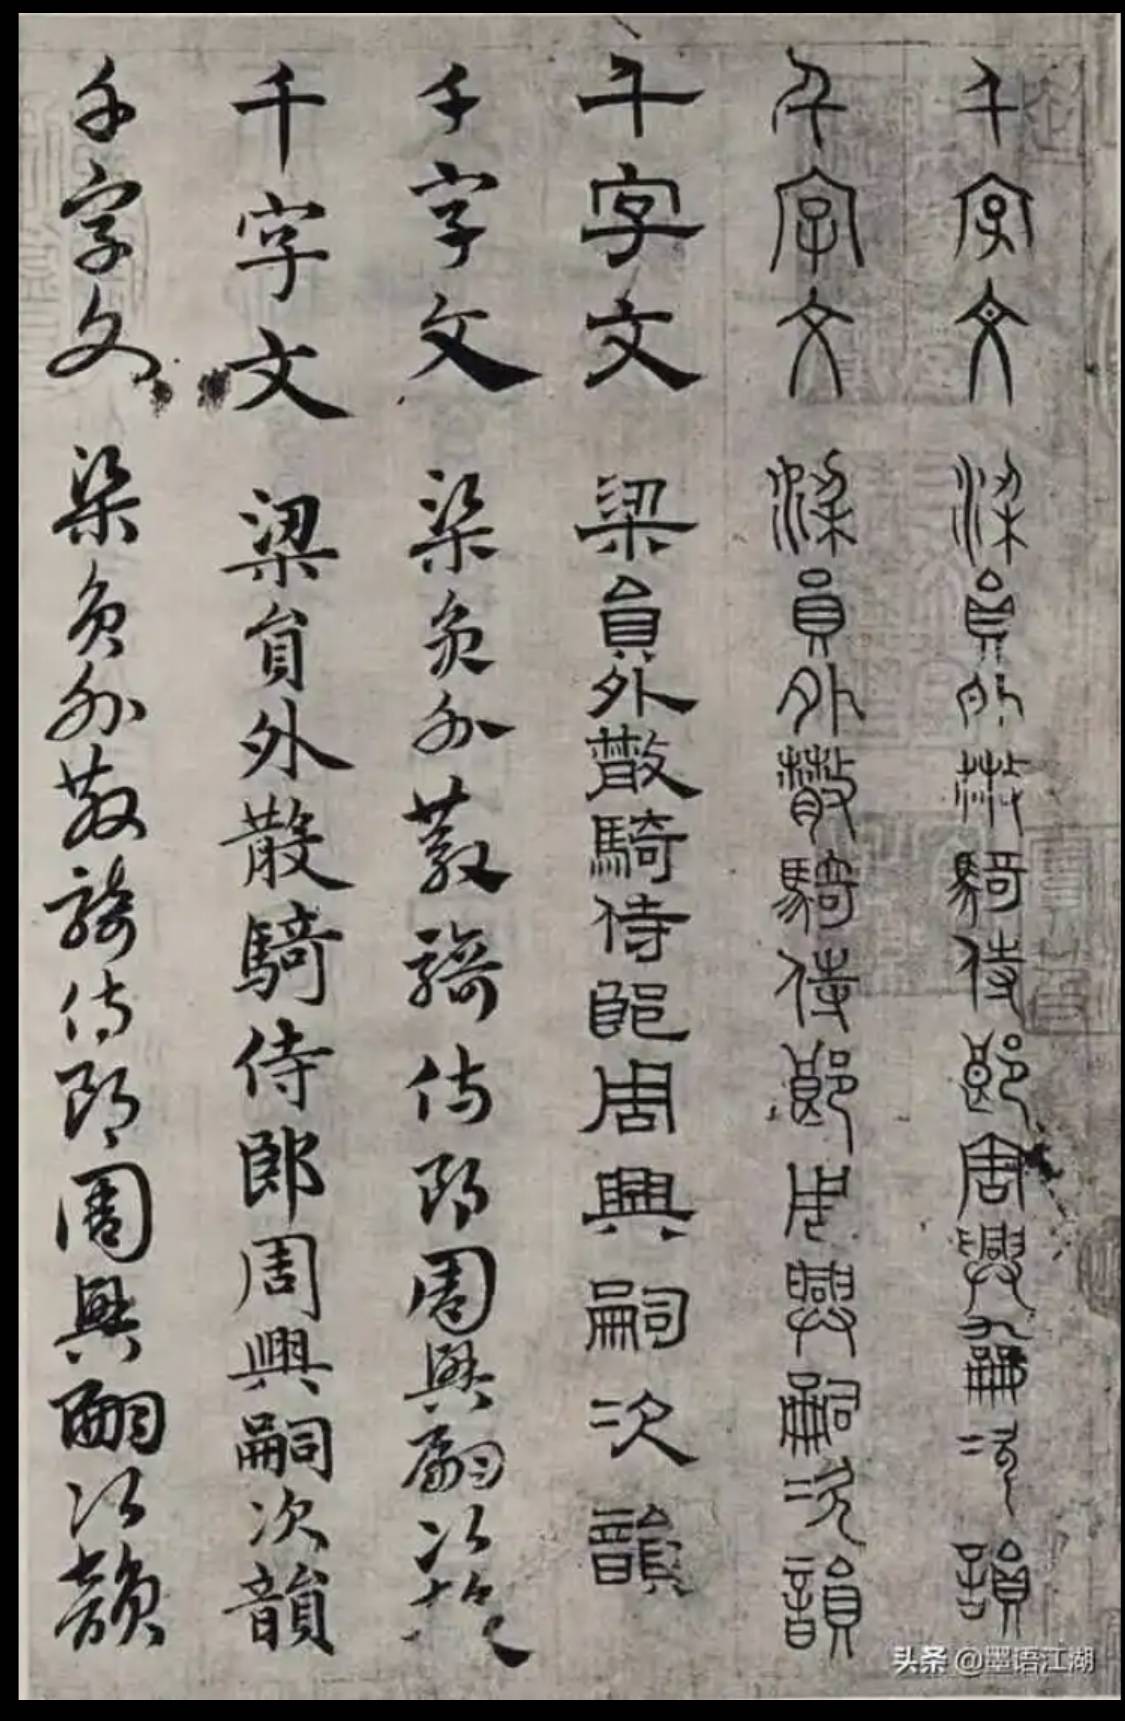 千字文 梁員外散騎侍郎周興嗣次韻
千字文 梁員外散騎侍郎周興嗣次韻
千字文 梁員外散騎侍郎周興嗣次韻
千字文 梁員外散騎侍郎周興嗣次韻
千字文 梁員外散騎侍郎周興嗣次韻
千字文 梁員外散騎侍郎周興嗣次韻
头条 @墨语江湖